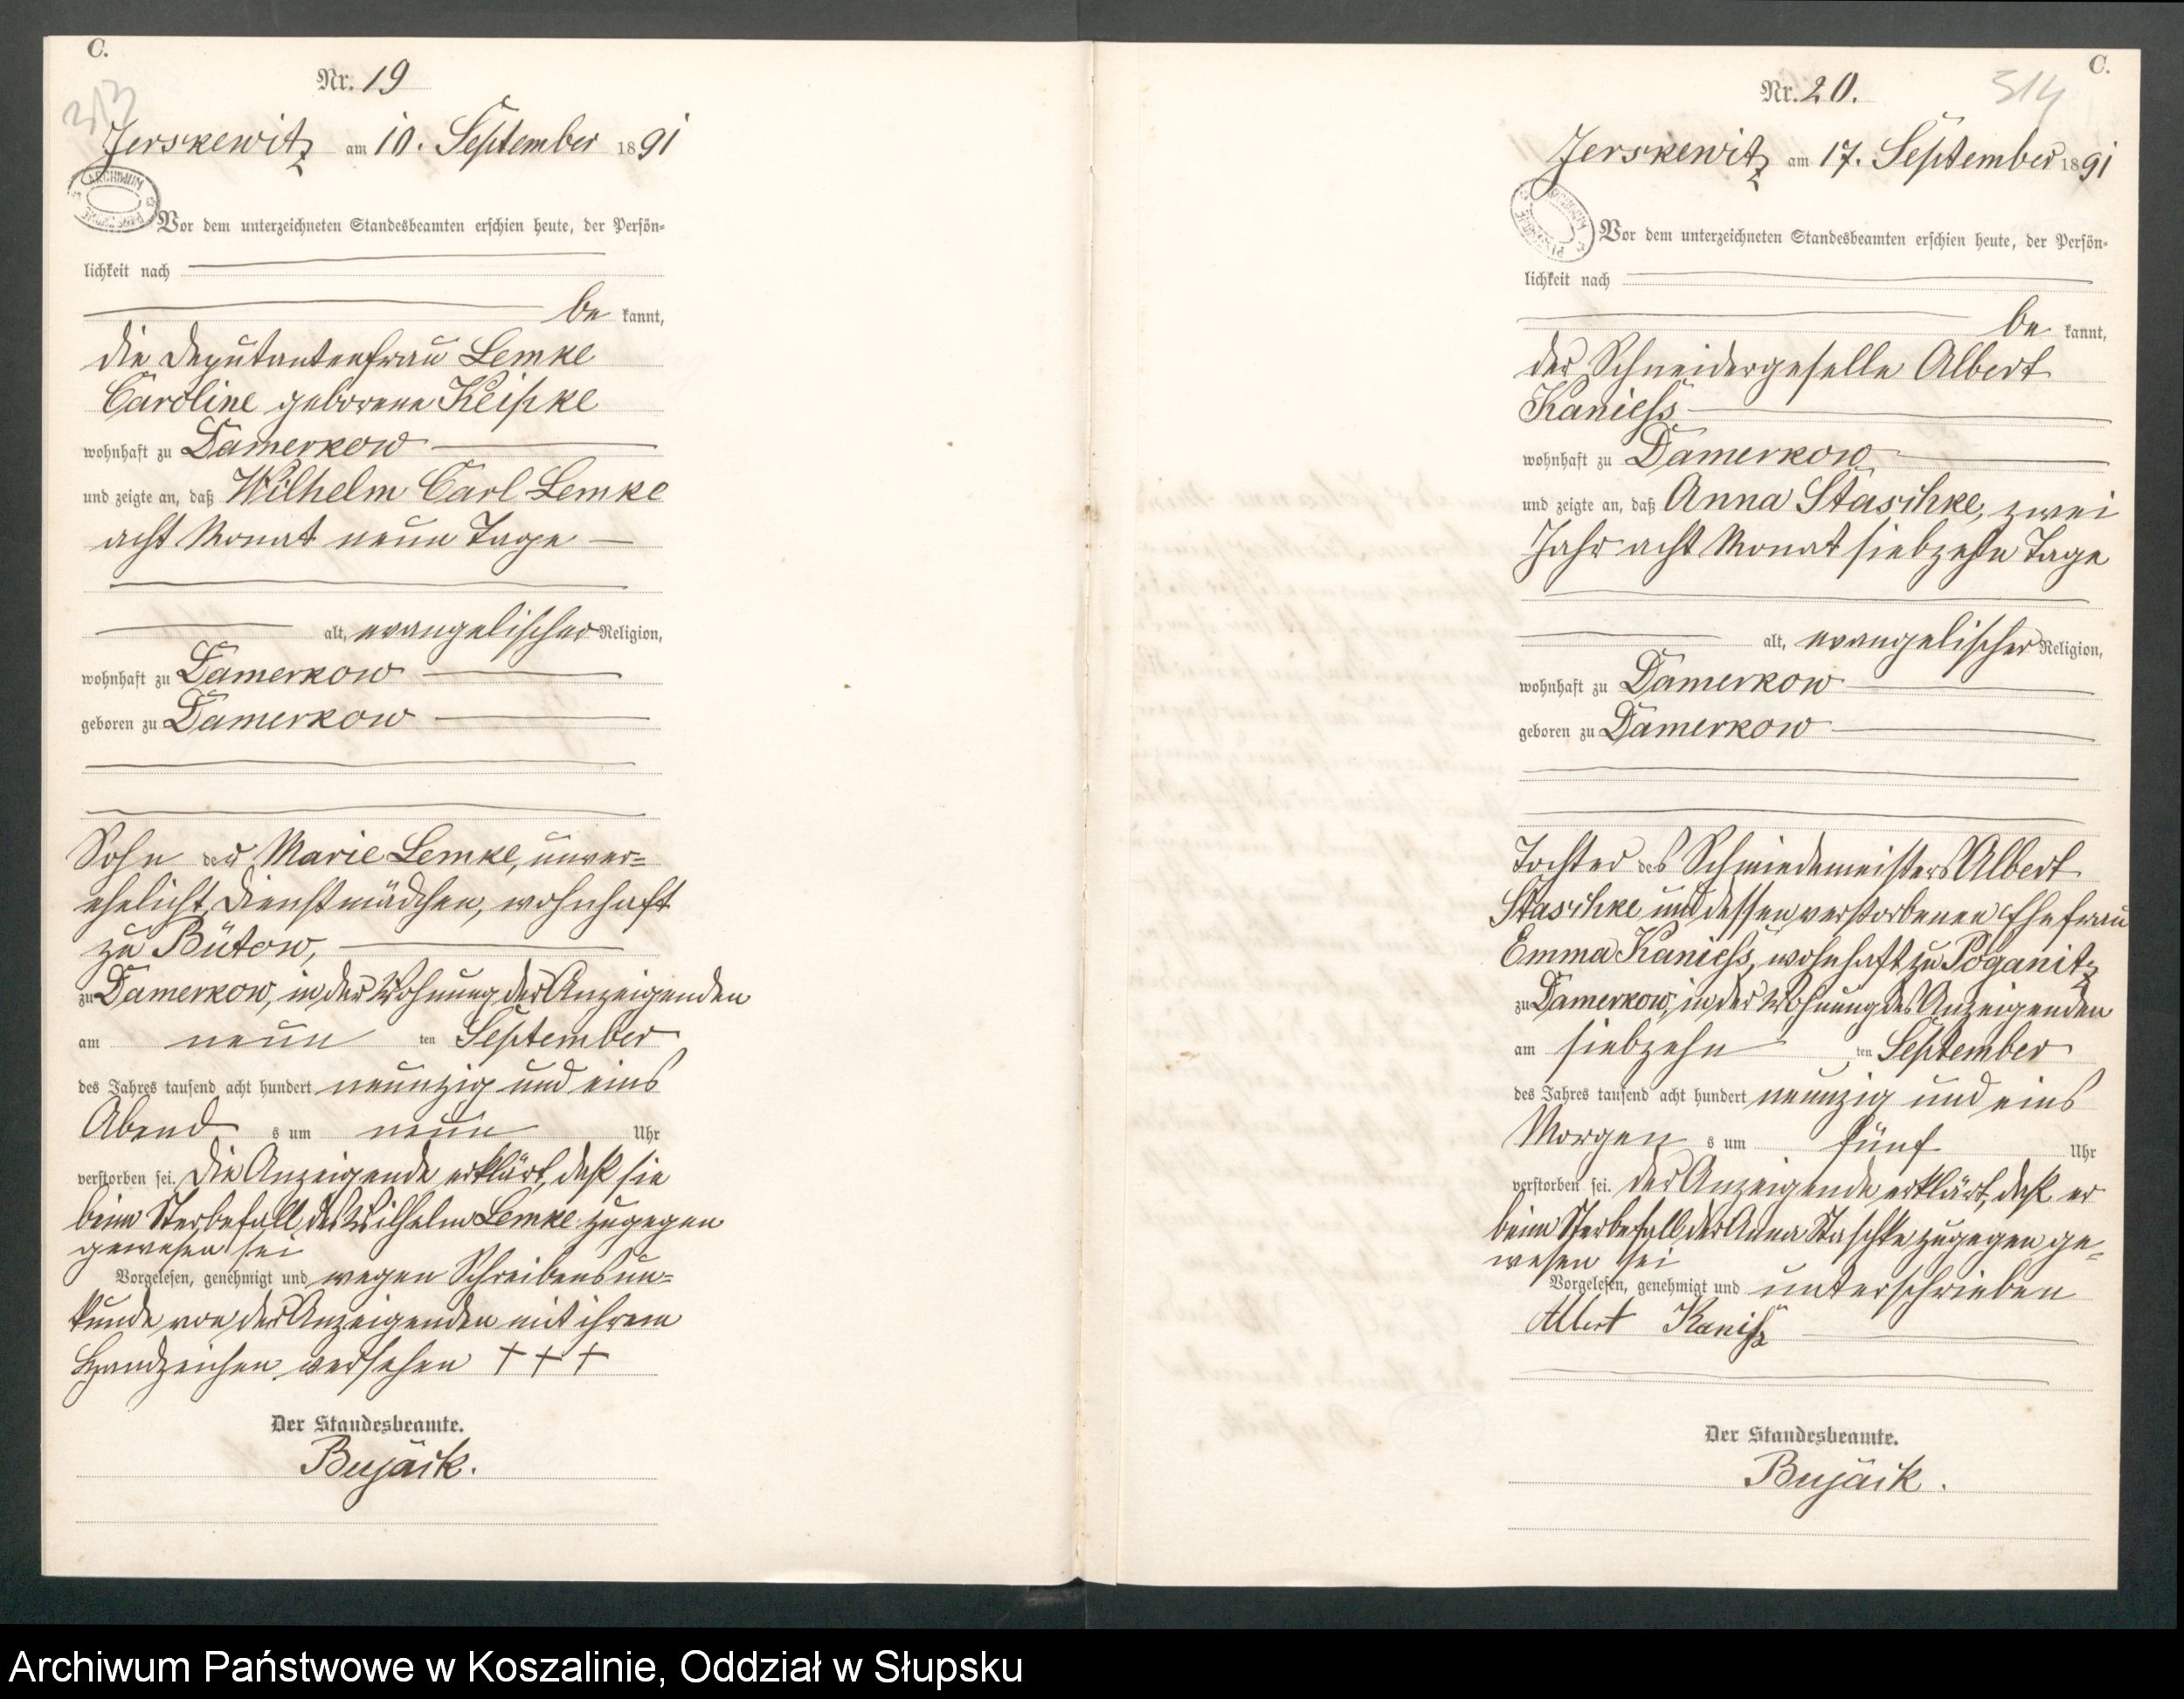 C.
313
Nr. 19
Jerskewitz am 10. September 1891
ARCHIWUM
Vor dem unterzeichneten Standesbeamten erschien heute, der Persön-
lichkeit nach
be kannt,
die Deputantenfrau Lemke
Caroline geborene Keipke
wohnhaft zu Damerkow
und zeigte an, daß Wilhelm Carl Lemke
acht Monat neun Tage
alt, evangelischer Religion,
wohnhaft zu Damerkow
geboren zu Damerkow
Sohn der Marie Lemke, unver-
ehelicht, Dienstmädchen, wohnhaft
zu Bütow,
zu Damerkow, in der Wohnung der Anzeigenden
am neun ten September
des Jahres tausend acht hundert neunzig und eins
Abend s um neun Uhr
verstorben sei. Die Anzeigende erklärt, daß sie
beim Sterbefall des Wilhelm Lemke zugegen
gewesen sei
Vorgelesen, genehmigt und wegen Schreibensun-
kunde von der Anzeigenden mit ihrem
Handzeichen versehen + + +
Der Standesbeamte.
Bujäck.
C.
314
Nr. 20.
Jerskewitz am 17. September 1891
ARCHIWUM
Vor dem unterzeichneten Standesbeamten erschien heute, der Persön-
lichkeit nach
be kannt,
der Schneidergeselle Albert
Kaniess
wohnhaft zu Damerkow
und zeigte an, daß Anna Staschke, zwei
Jahr acht Monat siebzehn Tage
alt, evangelischer Religion,
wohnhaft zu Damerkow
geboren zu Damerkow
Tochter des Schmiedemeisters Albert
Staschke und dessen verstorbenen Ehefrau
Emma Kaniess, wohnhaft zu Poganitz
zu Damerkow, in der Wohnung des Anzeigenden
am siebzehn ten September
des Jahres tausend acht hundert neunzig und eins
Morgen s um fünf Uhr
verstorben sei. Der Anzeigende erklärt, daß er
beim Sterbefall der Anna Staschke zugegen ge-
wesen sei
Vorgelesen, genehmigt und unterschrieben
Albert Kaniß
Der Standesbeamte.
Bujäck.
Archiwum Państwowe w Koszalinie, Oddział w Słupsku